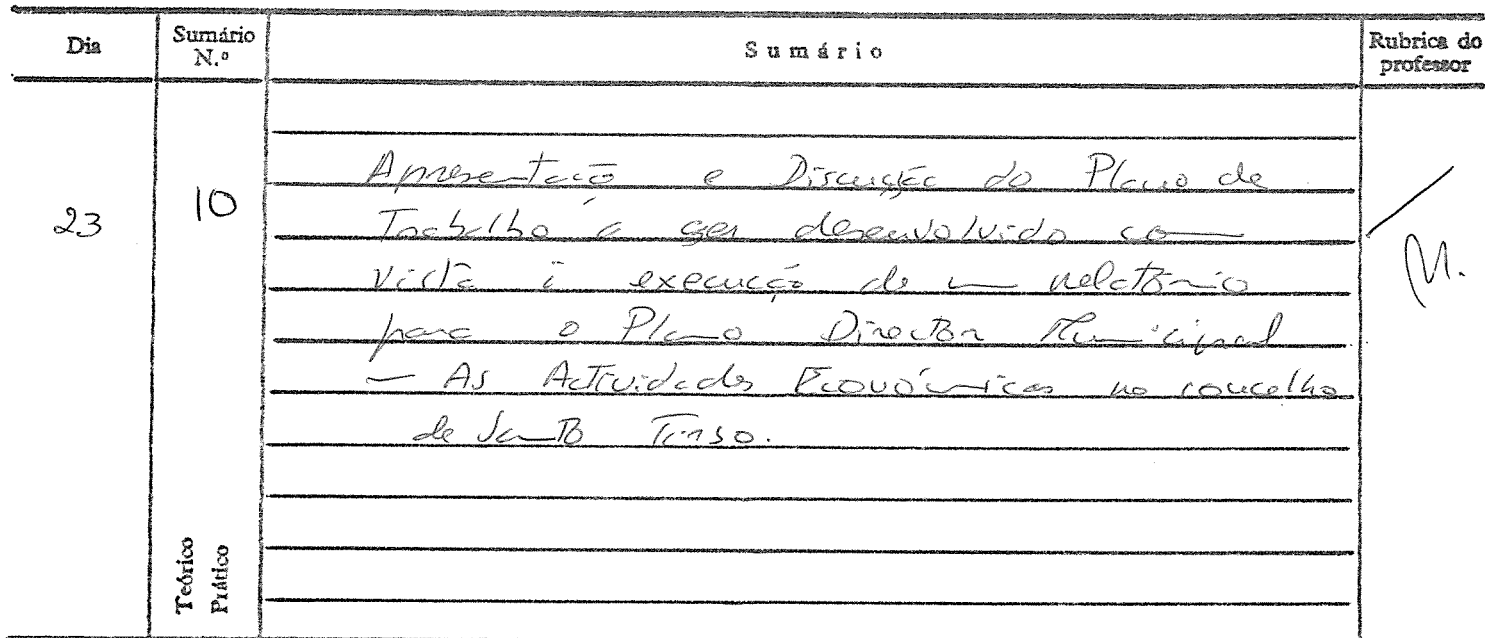 Dia
Sumário N.º
Sumário
Rubrica do professor
23
10
Apresentação e Discussão do Plano de
Trabalho a ser desenvolvido com
vista à execução de um relatório
para o Plano Director Municipal
— As Actividades Económicas no concelho
de Santo Tirso.
M.
Teórico
Prático